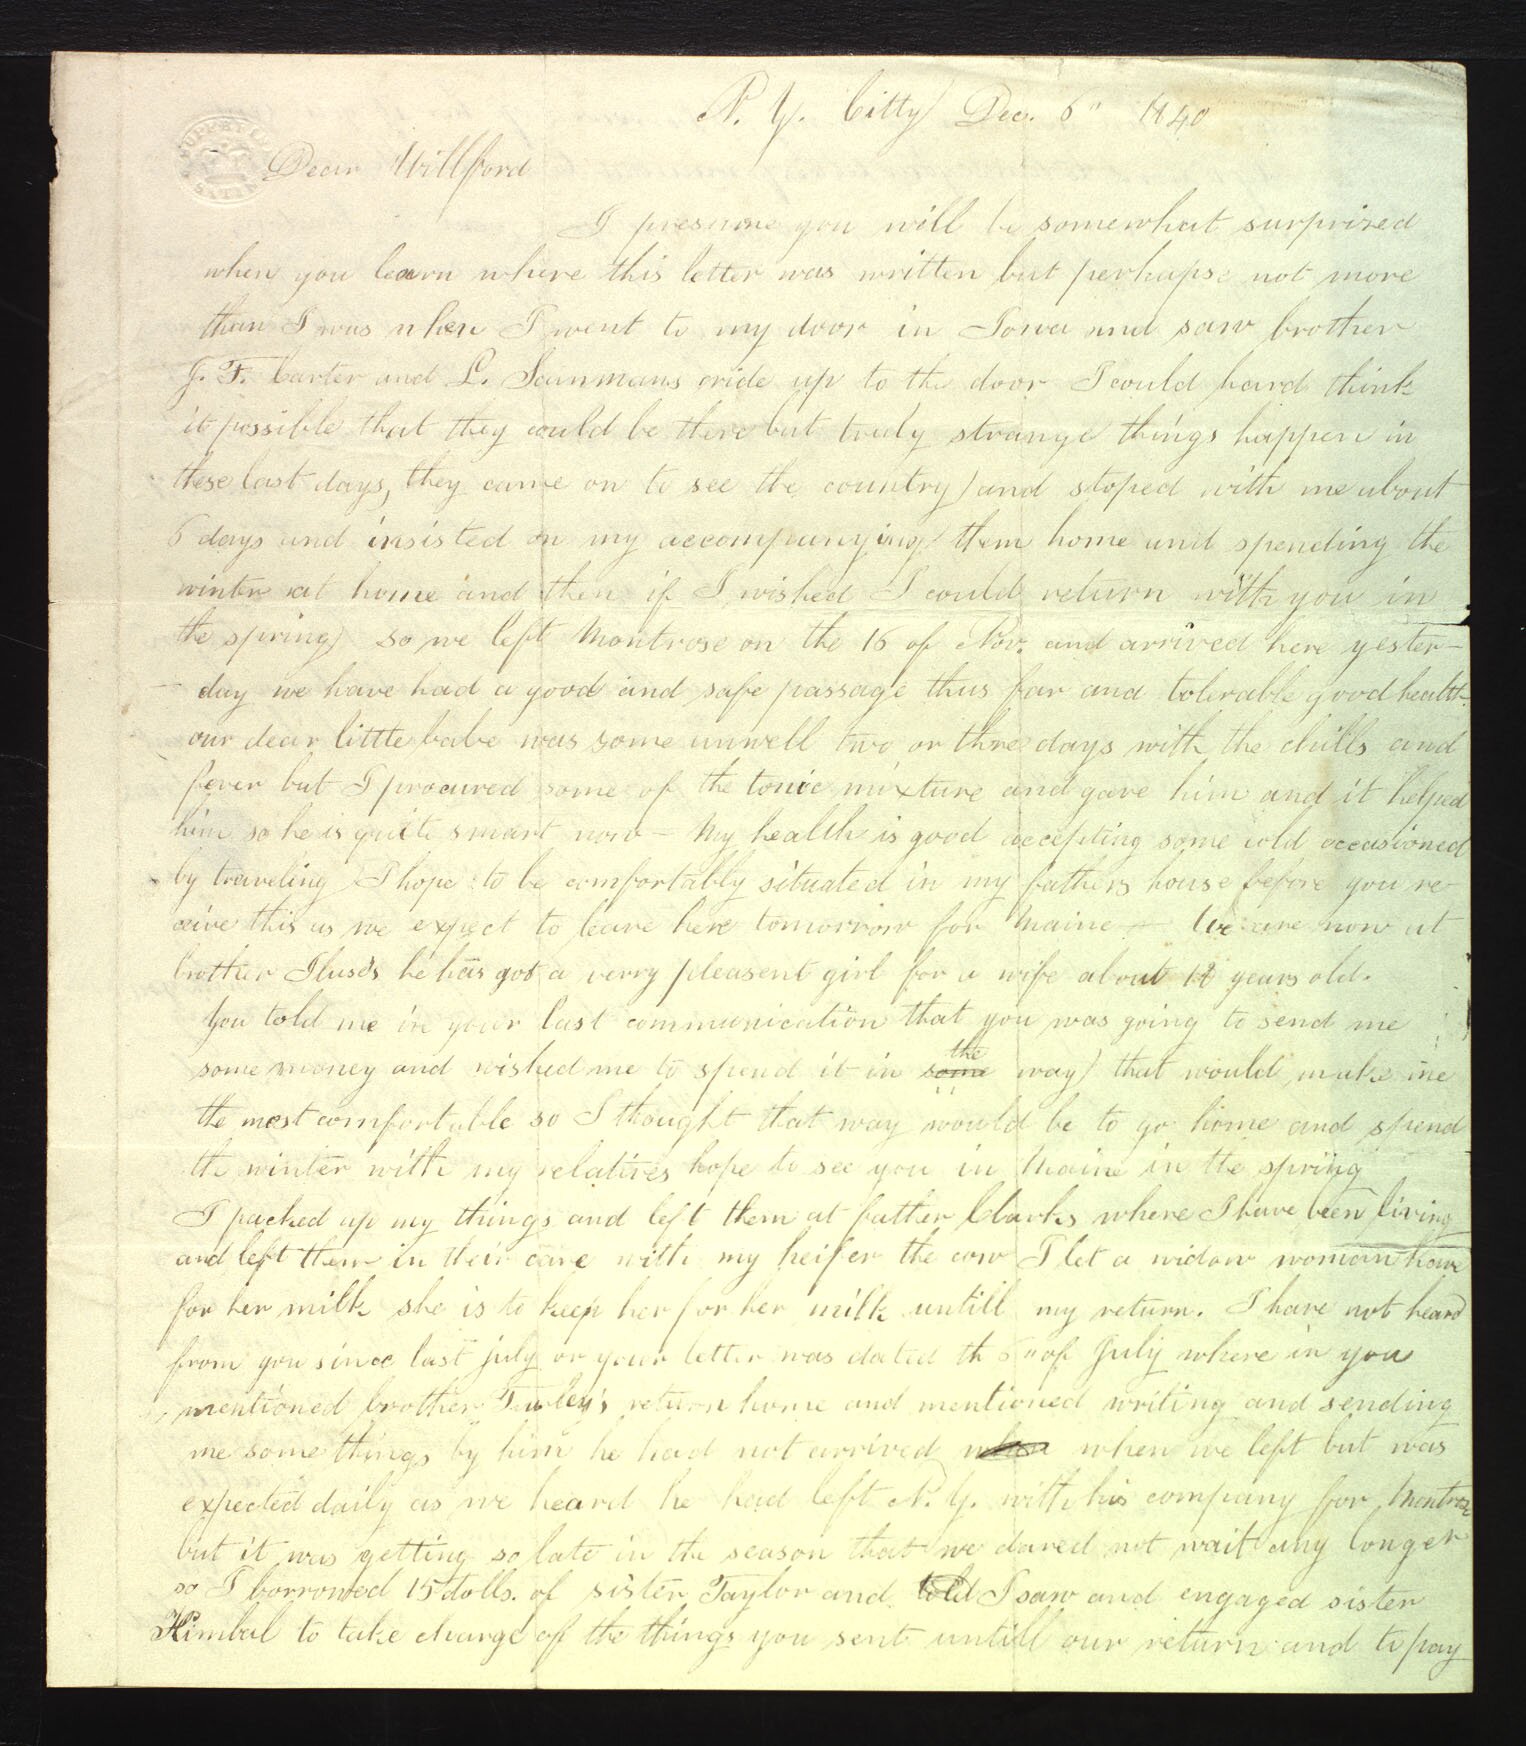 N. Y. Citty Dec. 6" 1840
Dear Willford
I presume you will be somewhat surprized
when you learn where this letter was written but perhapse not more
than I was when I went to my door in Iowa and saw brother
J. F. Carter and L. Scammans ride up to the door I could hard think
it possible that they could be there but truly strange things happen in
these last days, they came on to see the country and stoped with me about
6 days and insisted on my accompanying them home and spending the
winter at home and then if I wished I could return with you in
the spring so we left Montrose on the 16 of Nov. and arrived here yester-
day we have had a good and safe passage thus far and tolerable good health
our dear little babe was some unwell two or three days with the chills and
fever but I procured some of the tonic mixture and gave him and it helped
him so he is quite smart now - My health is good accepting some cold occasioned
by traveling I hope to be comfortably situated in my fathers house before you re-
ceive this as we expect to leave here tomorrow for Maine - We are now at
brother he has got a verry pleasent girl for a wife about 18 years old.
You told me in your last communication that you was going to send me
some money and wished me to spend it in some the way that would make me
the most comfortable so I thought that way would be to go home and spend
the winter with my relatives hope to see you in Maine in the spring
I packed up my things and left them at father Clarks where I have been living
and left them in their care with my heifer the cow I let a widow woman have
for her milk she is to keep her for her milk untill my return. I have not heard
from you since last july or your letter was dated th of July where in you
mentioned brother Turley's return home and mentioned writing and sending
me some things by him he had not arrived when when we left but was
expected daily as we heard he had left N. Y. with his company for Montrose
but it was getting so late in the season that we dared not wait any longer
so I borrowed 15 dolls. of sister Taylor and told I saw and engaged sister
Kimbal to take charge of the things you sent untill our return and to pay